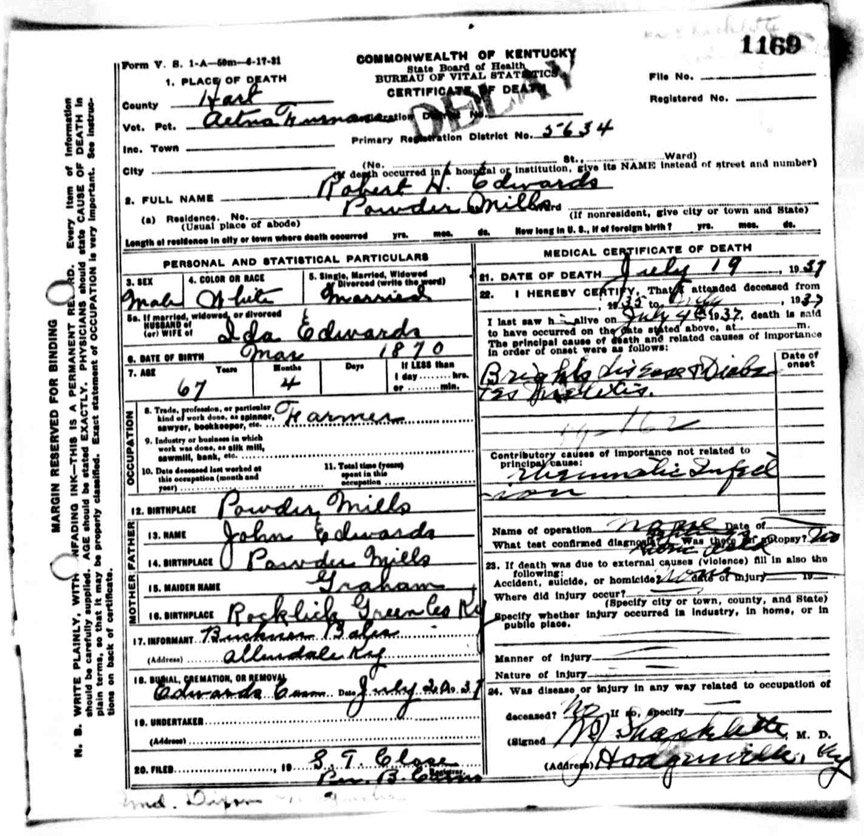 1169
Form V. S. 1-A—50m—6-17-31
COMMONWEALTH OF KENTUCKY
State Board of Health
BUREAU OF VITAL STATISTICS
CERTIFICATE OF DEATH
DELAY
File No.
Registered No.
1. PLACE OF DEATH
County Hart
Vot. Pct. Aetna Furnace Registration District No.
Inc. Town
Primary Registration District No. 5634
City
(No. St., Ward)
(If death occurred in a hospital or institution, give its NAME instead of street and number)
2. FULL NAME Robert H. Edwards
(a) Residence. No. Powder Mills Ward
(Usual place of abode)
(If nonresident, give city or town and State)
Length of residence in city or town where death occurred yrs. mos. ds. How long in U. S., if of foreign birth? yrs. mos. ds.
MARGIN RESERVED FOR BINDING
N. B. WRITE PLAINLY, WITH UNFADING INK—THIS IS A PERMANENT RECORD. Every item of information
should be carefully supplied. AGE should be stated EXACTLY. PHYSICIANS should state CAUSE OF DEATH in
plain terms, so that it may be properly classified. Exact statement of OCCUPATION is very important. See instruc-
tions on back of certificate.
PERSONAL AND STATISTICAL PARTICULARS
3. SEX
Male
4. COLOR OR RACE
White
5. Single, Married, Widowed
Divorced (write the word)
Married
5a. If married, widowed, or divorced
HUSBAND of
(or) WIFE of Ida Edwards
6. DATE OF BIRTH Mar 1870
7. AGE Years Months Days If LESS than
1 day hrs.
or min.
67 4
OCCUPATION
8. Trade, profession, or particular
kind of work done, as spinner,
sawyer, bookkeeper, etc. Farmer
9. Industry or business in which
work was done, as silk mill,
sawmill, bank, etc.
10. Date deceased last worked at
this occupation (month and
year)
11. Total time (years)
spent in this
occupation
12. BIRTHPLACE Powder Mills
FATHER
13. NAME John Edwards
14. BIRTHPLACE Powder Mills
MOTHER
15. MAIDEN NAME Graham
16. BIRTHPLACE Rocklick Green Co Ky
17. INFORMANT Buckner Bales
(Address) Allendale Ky
18. BURIAL, CREMATION, OR REMOVAL
Edwards Cem Date July 20, 37
19. UNDERTAKER
(Address)
20. FILED , 19 S. T. Close
Registrar
MEDICAL CERTIFICATE OF DEATH
21. DATE OF DEATH July 19, 1937
22. I HEREBY CERTIFY, That I attended deceased from
1935 to , 1937
I last saw him alive on July 4th, 1937, death is said
to have occurred on the date stated above, at m.
The principal cause of death and related causes of importance
in order of onset were as follows:
Date of
onset
Brights disease & Diabe
tes
Contributory causes of importance not related to
principal cause:
Rheumatic Infect
ion
Name of operation none Date of
What test confirmed diagnosis? Was there an autopsy? No
23. If death was due to external causes (violence) fill in also the
following:
Accident, suicide, or homicide? none date of injury 19
Where did injury occur?
(Specify city or town, county, and State)
Specify whether injury occurred in industry, in home, or in
public place.
Manner of injury
Nature of injury
24. Was disease or injury in any way related to occupation of
deceased? No If so, specify
(Signed) Shacklette, M. D.
(Address) Hodgenville, Ky